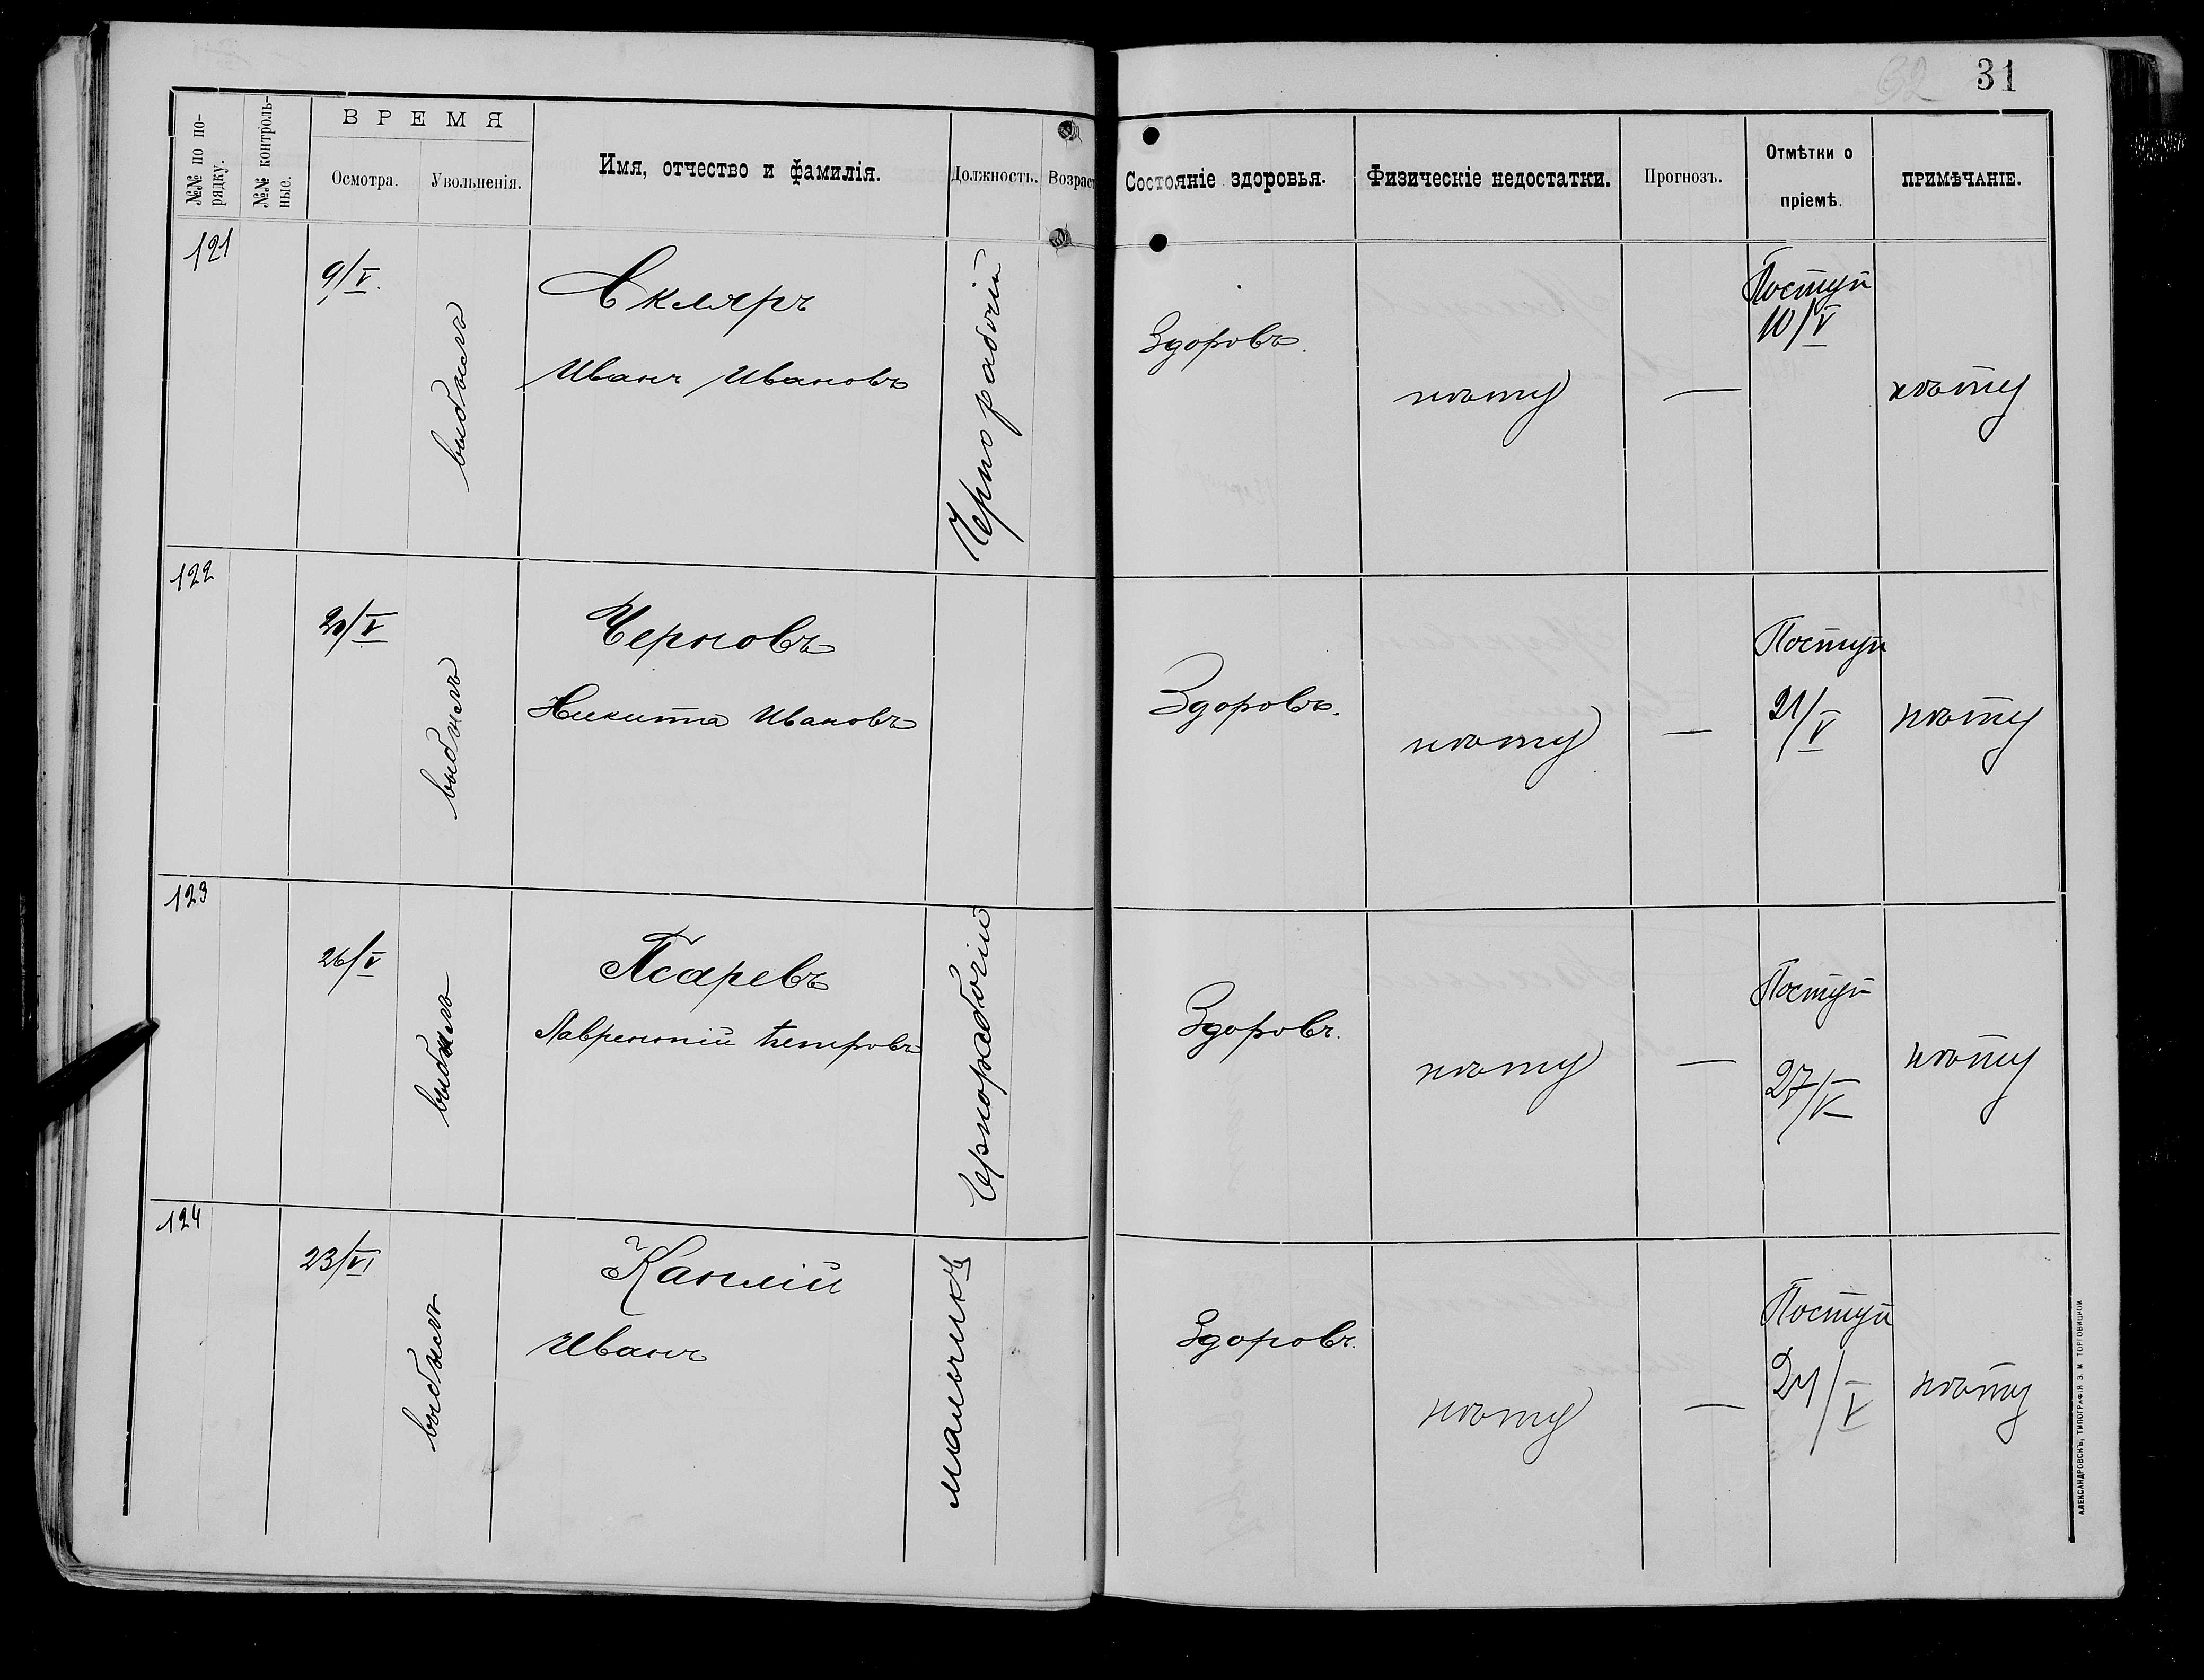 32 31
№№ по по-
рядку.
№№ контроль-
ные.
ВРЕМЯ
Осмотра.
Увольненія.
Имя, отчество и фамилія.
Должность.
Возраст
Состояніе здоровья.
Физическіе недостатки.
Прогнозъ.
Отмѣтки о
пріемѣ.
ПРИМѢЧАНІЕ.
121
9/V.
выбылъ
Скляръ
Иванъ Ивановъ
Чернорабочій
Здоровъ.
нѣту
—
Поступ
10/V
нѣту
122
20/V
выбылъ
Черновъ
Никита Ивановъ
Здоровъ.
нѣту
—
Поступ
21/V
нѣту
123
26/V
выбылъ
Псаревъ
Лаврентій Петровъ
Чернорабочій
Здоровъ.
нѣту
—
Поступ
27/V
нѣту
124
23/VI
выбылъ
Иванъ
мальчикъ
Здоровъ.
нѣту
—
Поступ
24/V
нѣту
АЛЕКСАНДРОВСКЪ, ТИПОГРАФІЯ З. М. ТОРГОВИЦКОЙ